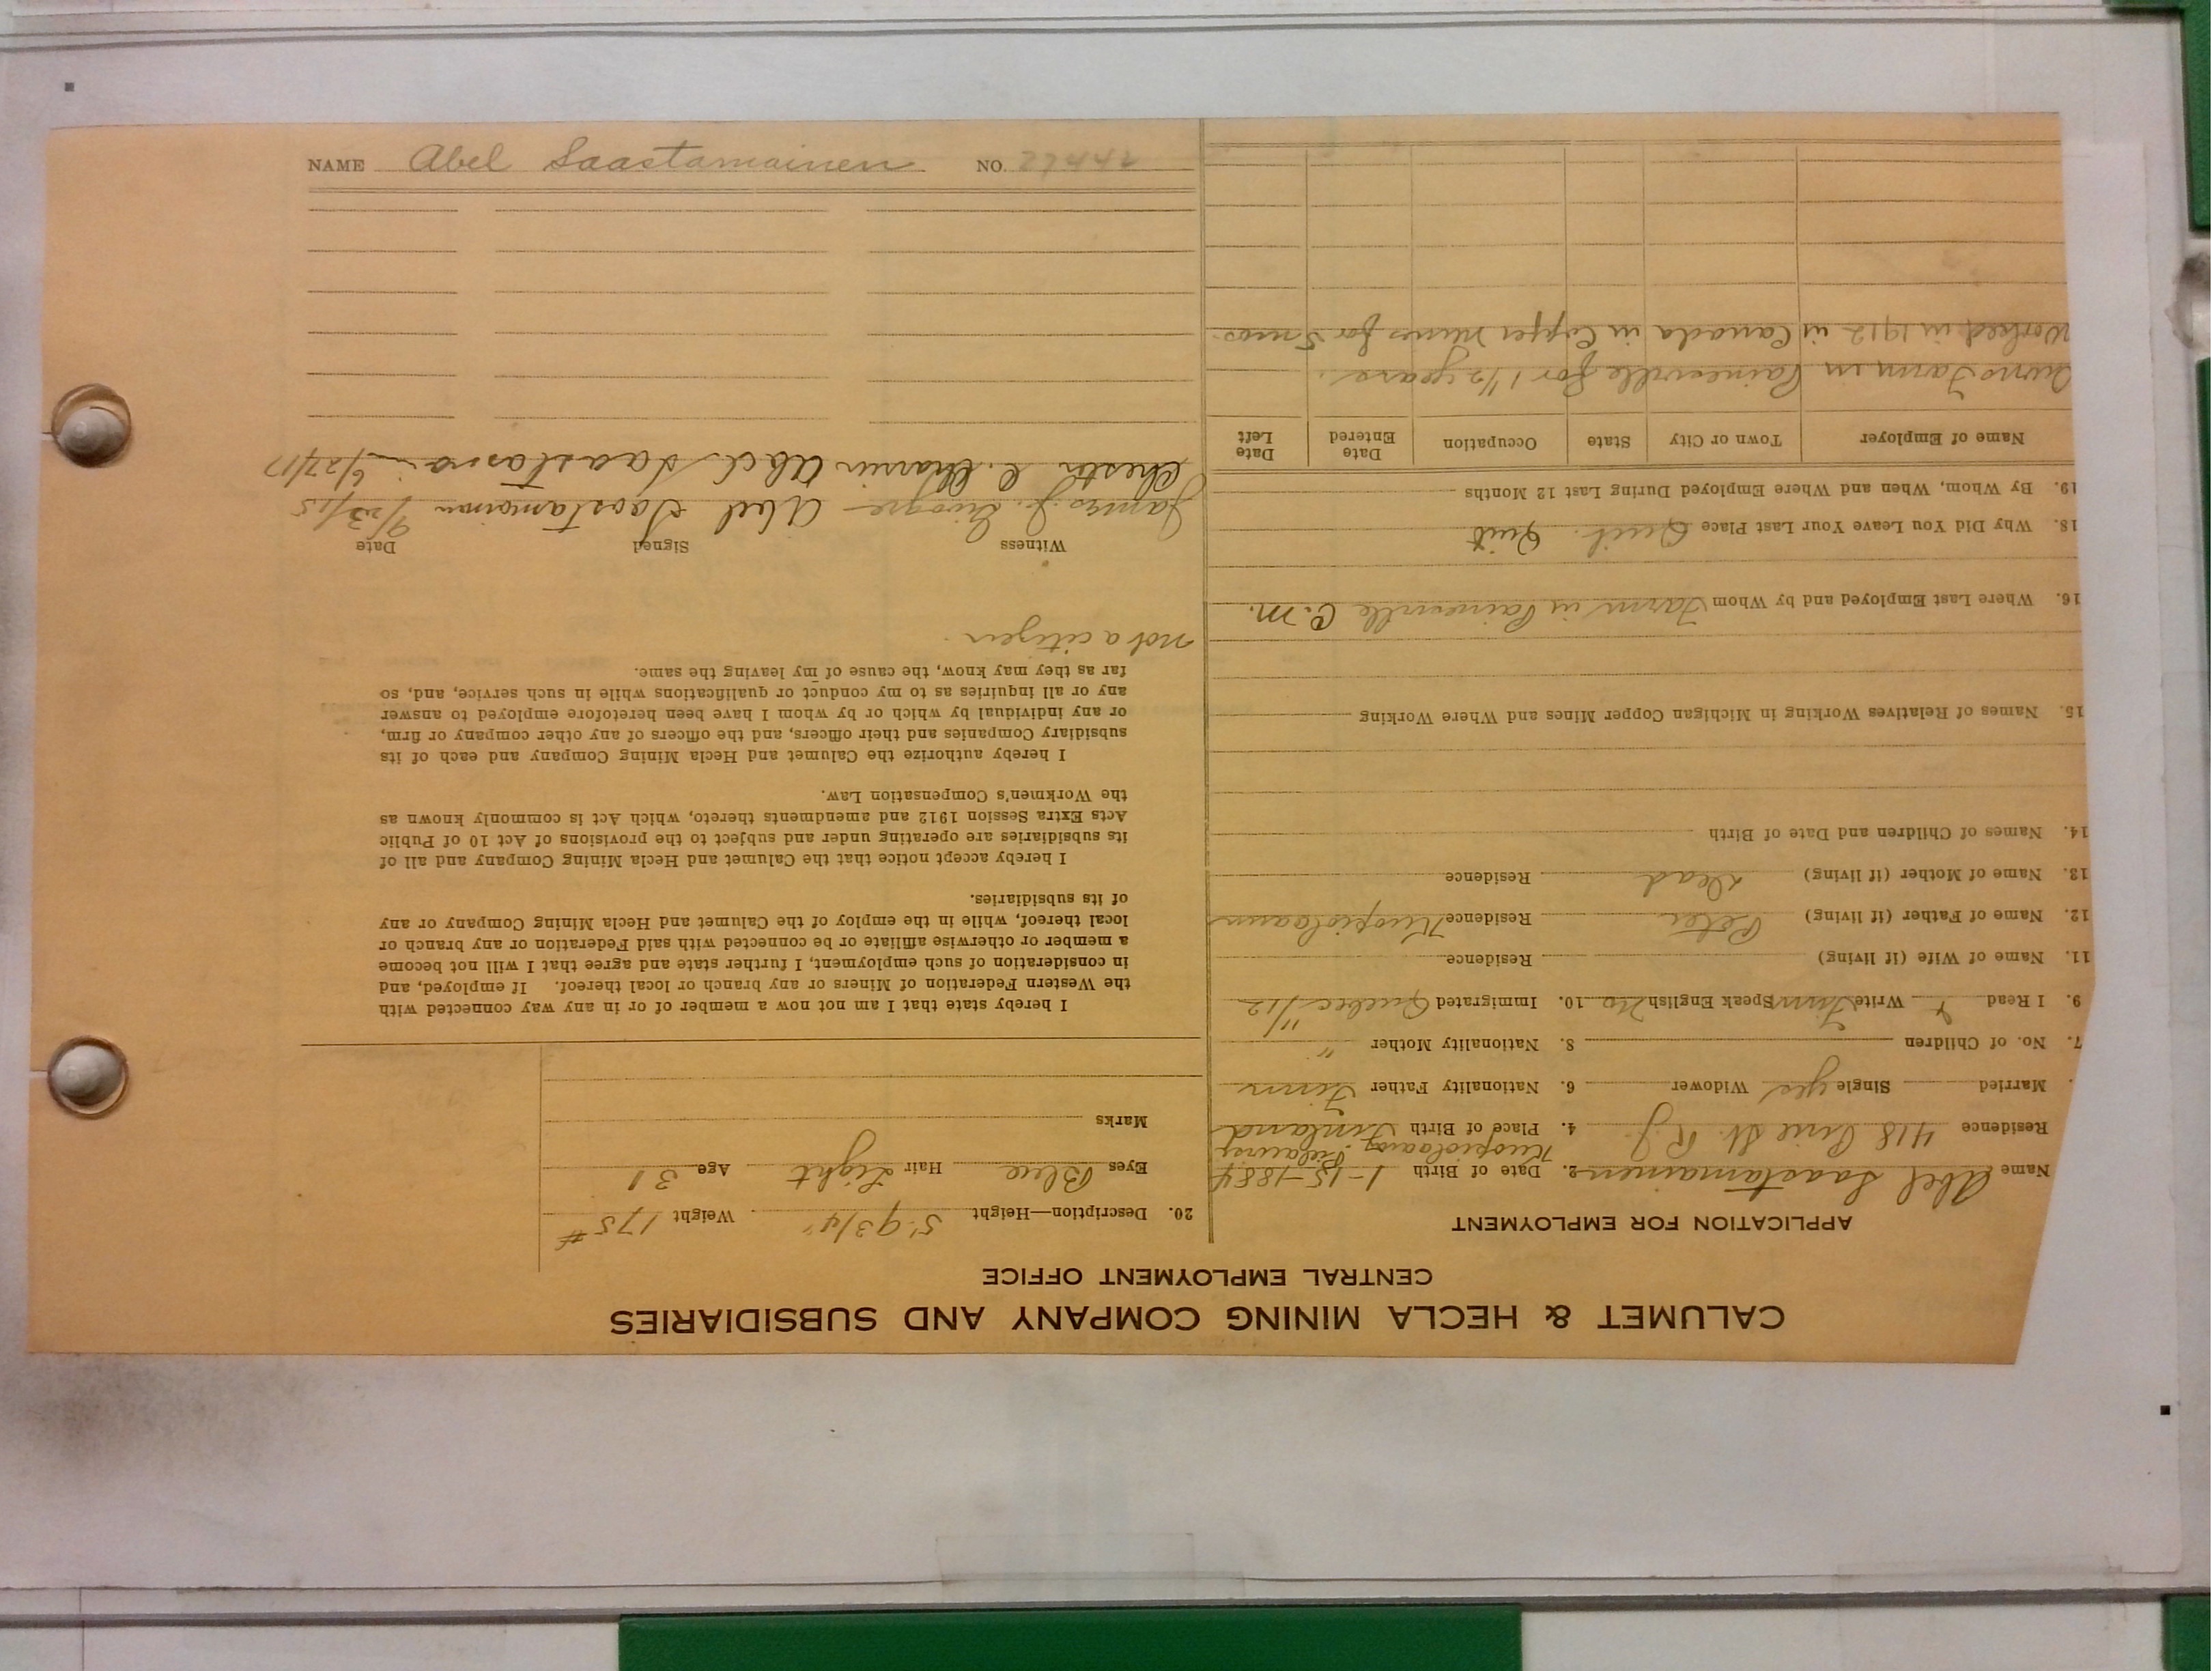 CALUMET & HECLA MINING COMPANY AND SUBSIDIARIES
CENTRAL EMPLOYMENT OFFICE
APPLICATION FOR EMPLOYMENT
Name Abel Saastamainen 2. Date of Birth 1-15-1884
Residence 418 Pine St. R.J. 4. Place of Birth Finland
Married Single yes Widower 6. Nationality Father Finn
7. No. of Children 8. Nationality Mother "
9. I Read Write Finn Speak English No 10. Immigrated Quebec 11/12
11. Name of Wife (if living) Residence
12. Name of Father (if living) Peter Residence
13. Name of Mother (if living) Dead Residence
14. Names of Children and Date of Birth
15. Names of Relatives Working in Michigan Copper Mines and Where Working
16. Where Last Employed and by Whom Farm in Paineville C.M.
18. Why Did You Leave Your Last Place Quit. Quit
19. By Whom, When and Where Employed During Last 12 Months
Name of Employer Town or City State Occupation Date Entered Date Left
Farm in Paineville for 1 1/2 years.
Worked in 1912 in Canada in Copper Mines for 5 mos.
20. Description—Height 5' 9 3/4" Weight 175 #
Eyes Blue Hair Light Age 31
Marks
I hereby state that I am not now a member of or in any way connected with
the Western Federation of Miners or any branch or local thereof. If employed, and
in consideration of such employment, I further state and agree that I will not become
a member or otherwise affiliate or be connected with said Federation or any branch or
local thereof, while in the employ of the Calumet and Hecla Mining Company or any
of its subsidiaries.
I hereby accept notice that the Calumet and Hecla Mining Company and all of
its subsidiaries are operating under and subject to the provisions of Act 10 of Public
Acts Extra Session 1912 and amendments thereto, which Act is commonly known as
the Workmen's Compensation Law.
I hereby authorize the Calumet and Hecla Mining Company and each of its
subsidiary Companies and their officers, and the officers of any other company or firm,
or any individual by which or by whom I have been heretofore employed to answer
any or all inquiries as to my conduct or qualifications while in such service, and, so
far as they may know, the cause of my leaving the same.
not a citizen
Witness Signed Date
James J. Abel Saastamoinen 9/23/15
Chester C. Abel 6/27/17
NAME Abel Saastamainen NO. 27442